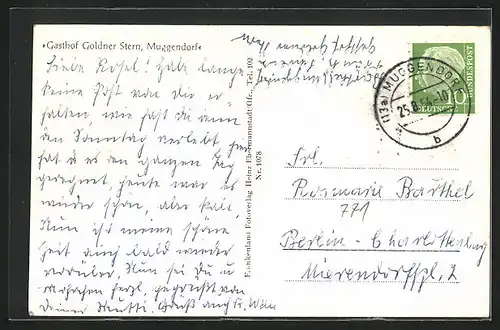 »Gasthof Goldner Stern, Muggendorf«
Liebe Rosel! Habe lange
keine Post von dir er-
halten, wie hast du denn
den Sonntag verlebt, hier
hat es den ganzen Tag
geregnet, heute war es
wieder schön, aber kalt.
Nun ist meine schöne
Zeit auch bald wieder
vorüber. Nun sei du u
herzl. gegrüßt von
deiner Mutti. Gruß auch
Frankenland Fotoverlag Heinz Ebermannstadt/Ofr. Tel. 102
Nr. 1078
(13a) MUGGENDORF
25.8.
b
10
DEUTSCHE BUNDESPOST
Frl.
Rosmarie Barthel
771
Berlin - Charlottenburg
Mierendorffpl. 2